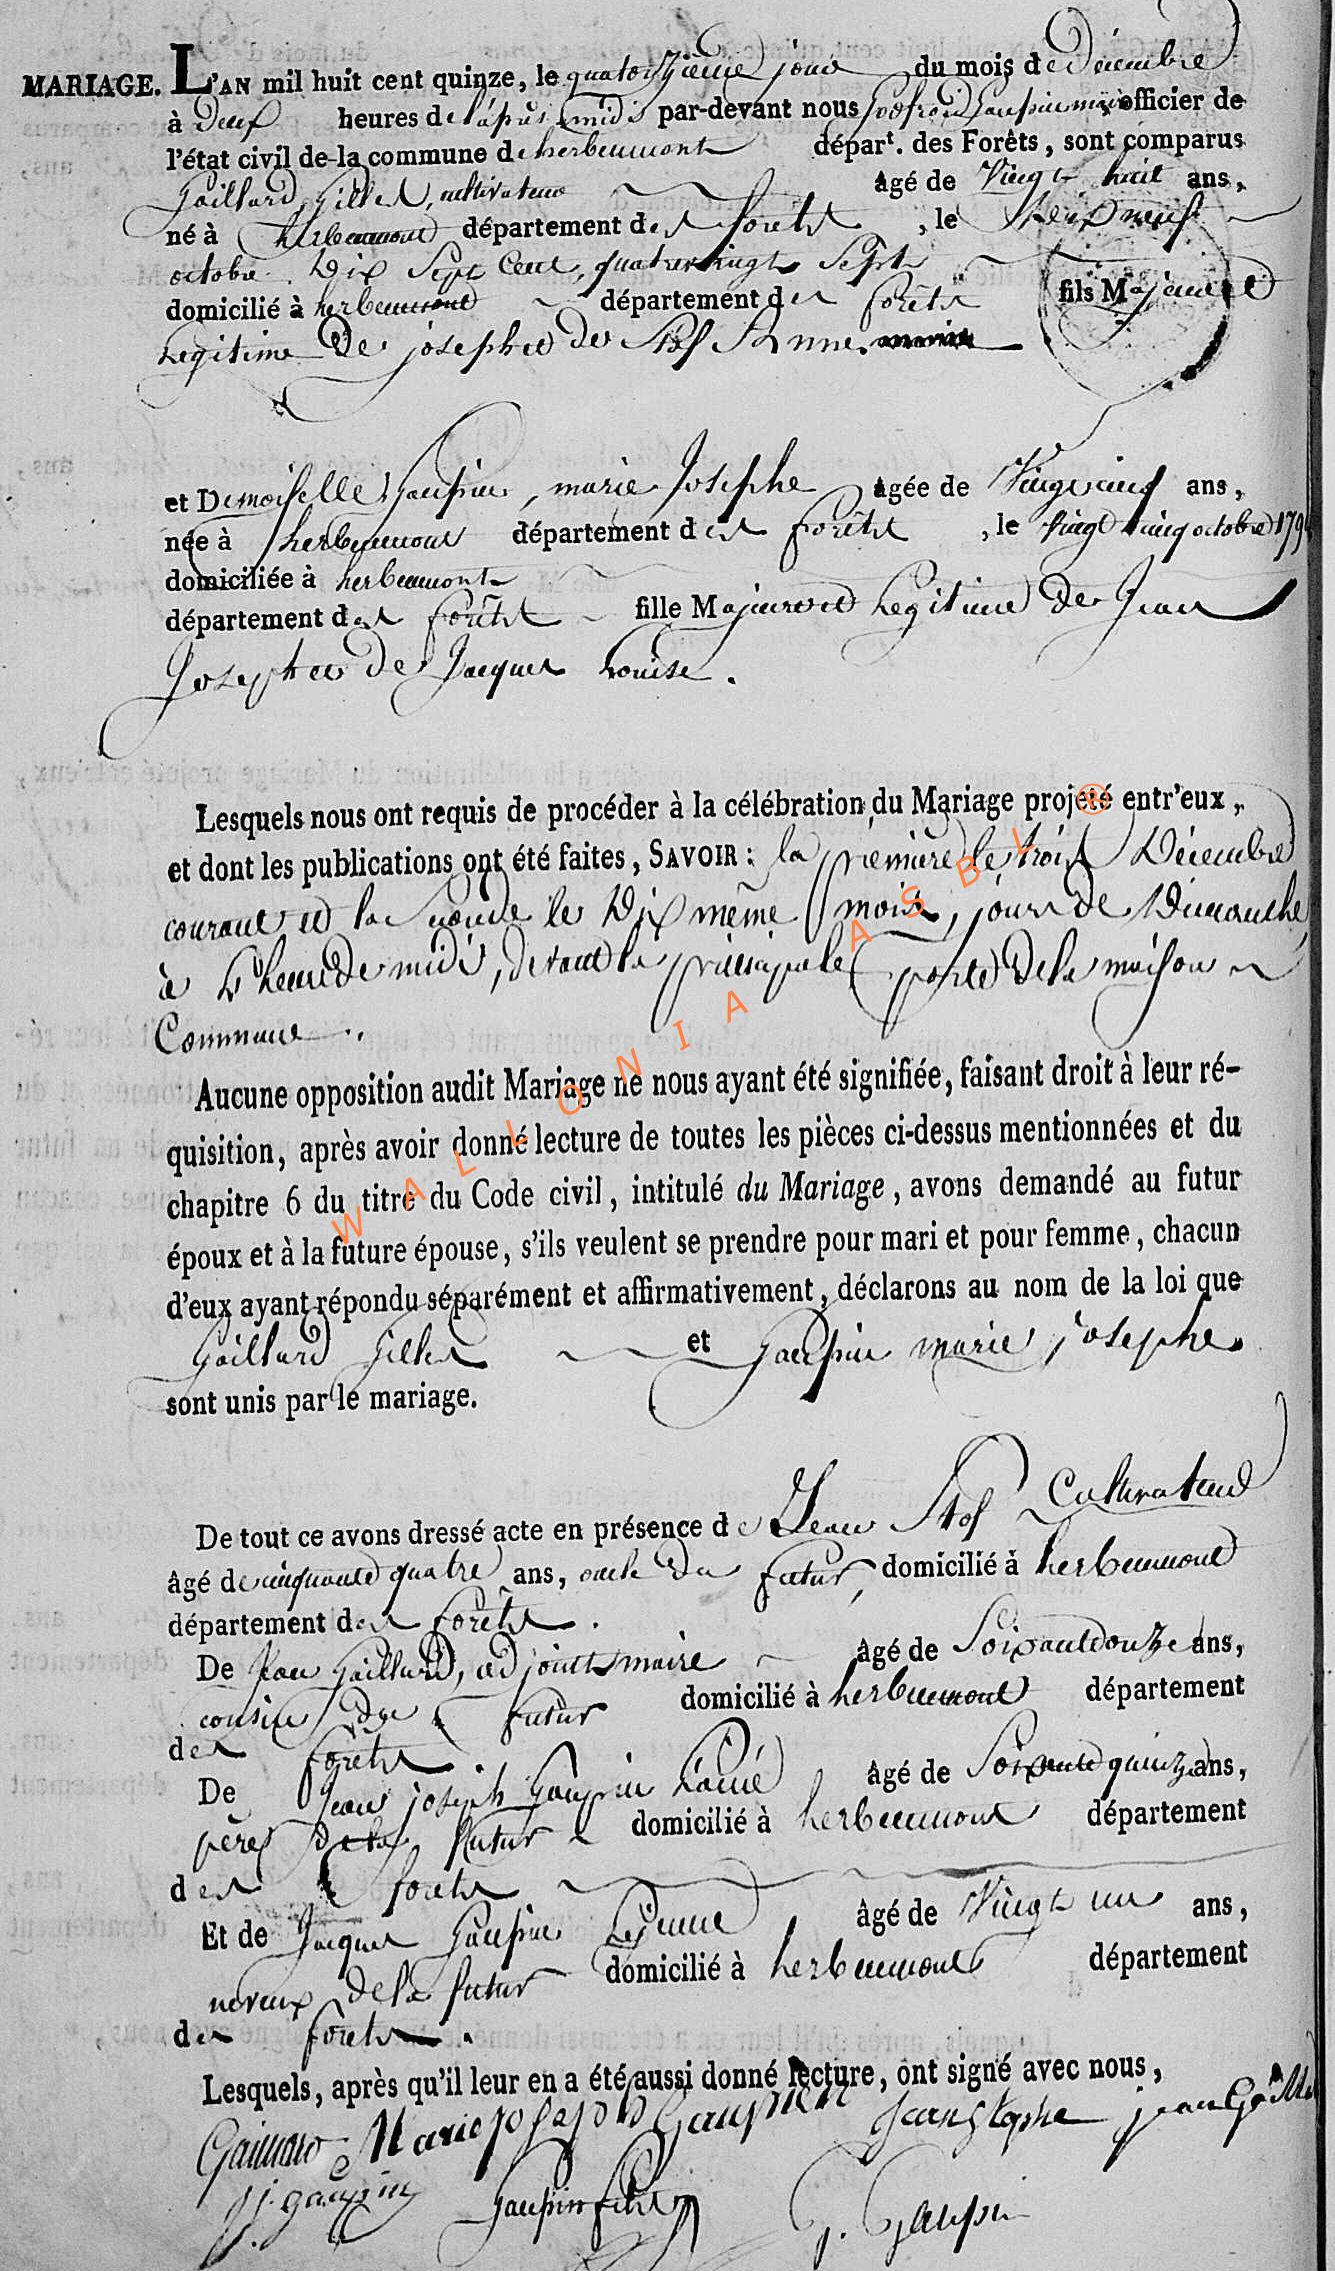 MARIAGE. L'AN mil huit cent quinze, le quatorzieme jour du mois de Décembre
à Deux heures de l'après midis par-devant nous Godfroid Gaupin maire officier de
l'état civil de la commune de herbeumont départ. des Forêts, sont comparus
Gaillard, Gilles, cultivateur âgé de Vingt huit ans,
né à herbeumont département des forêts, le dix neuf
octobre Dix Sept Cent, quatrevingt Sept
domicilié à herbeumont département des forêts fils Majeur et
Legitime De joseph et de Stof Anne.
et Demoiselle Gaupin, marie Josephe agée de Vingt cinq ans,
née à herbeumont département des forêts, le Vingt cinq octobre 179
domiciliée à herbeumont
département des forêts fille Majeure et Legitime De Jean
Joseph et de Jacques Louise.
Lesquels nous ont requis de procéder à la célébration du Mariage projeté entr'eux,
et dont les publications ont été faites, SAVOIR: la première le trois Décembre
courant et la Seconde le Dix même mois, jours de Dimanche,
à L'heure de midi, devant la principale porte De la maison
Commune.
Aucune opposition audit Mariage ne nous ayant été signifiée, faisant droit à leur ré-
quisition, après avoir donné lecture de toutes les pièces ci-dessus mentionnées et du
chapitre 6 du titre du Code civil, intitulé du Mariage, avons demandé au futur
époux et à la future épouse, s'ils veulent se prendre pour mari et pour femme, chacun
d'eux ayant répondu séparément et affirmativement, déclarons au nom de la loi que
Gaillard Gilles et Gaupin marie josephe
sont unis par le mariage.
De tout ce avons dressé acte en présence de Jean Stof Cultivateur
âgé de cinquante quatre ans, oncle du futur, domicilié à herbeumont
département des forêts.
De Jean Gaillard, adjoint maire âgé de Soixante douze ans,
cousin du futur domicilié à herbeumont département
des forêts.
De Jean joseph Gaupin L'ainé âgé de Soixante quinze ans,
père De la futur domicilié à herbeumont département
des forêts
Et de Jacques Gaupin Lejeune âgé de Vingt un ans,
neveux de la futur domicilié à herbeumont département
des forêts.
Lesquels, après qu'il leur en a été aussi donné lecture, ont signé avec nous,
Gaillard Marie joseph Gaupin jean Stophe jean Gailla
J j. gaupin Gaupin fils G. Gaupin
WALLONIA ASBL ®